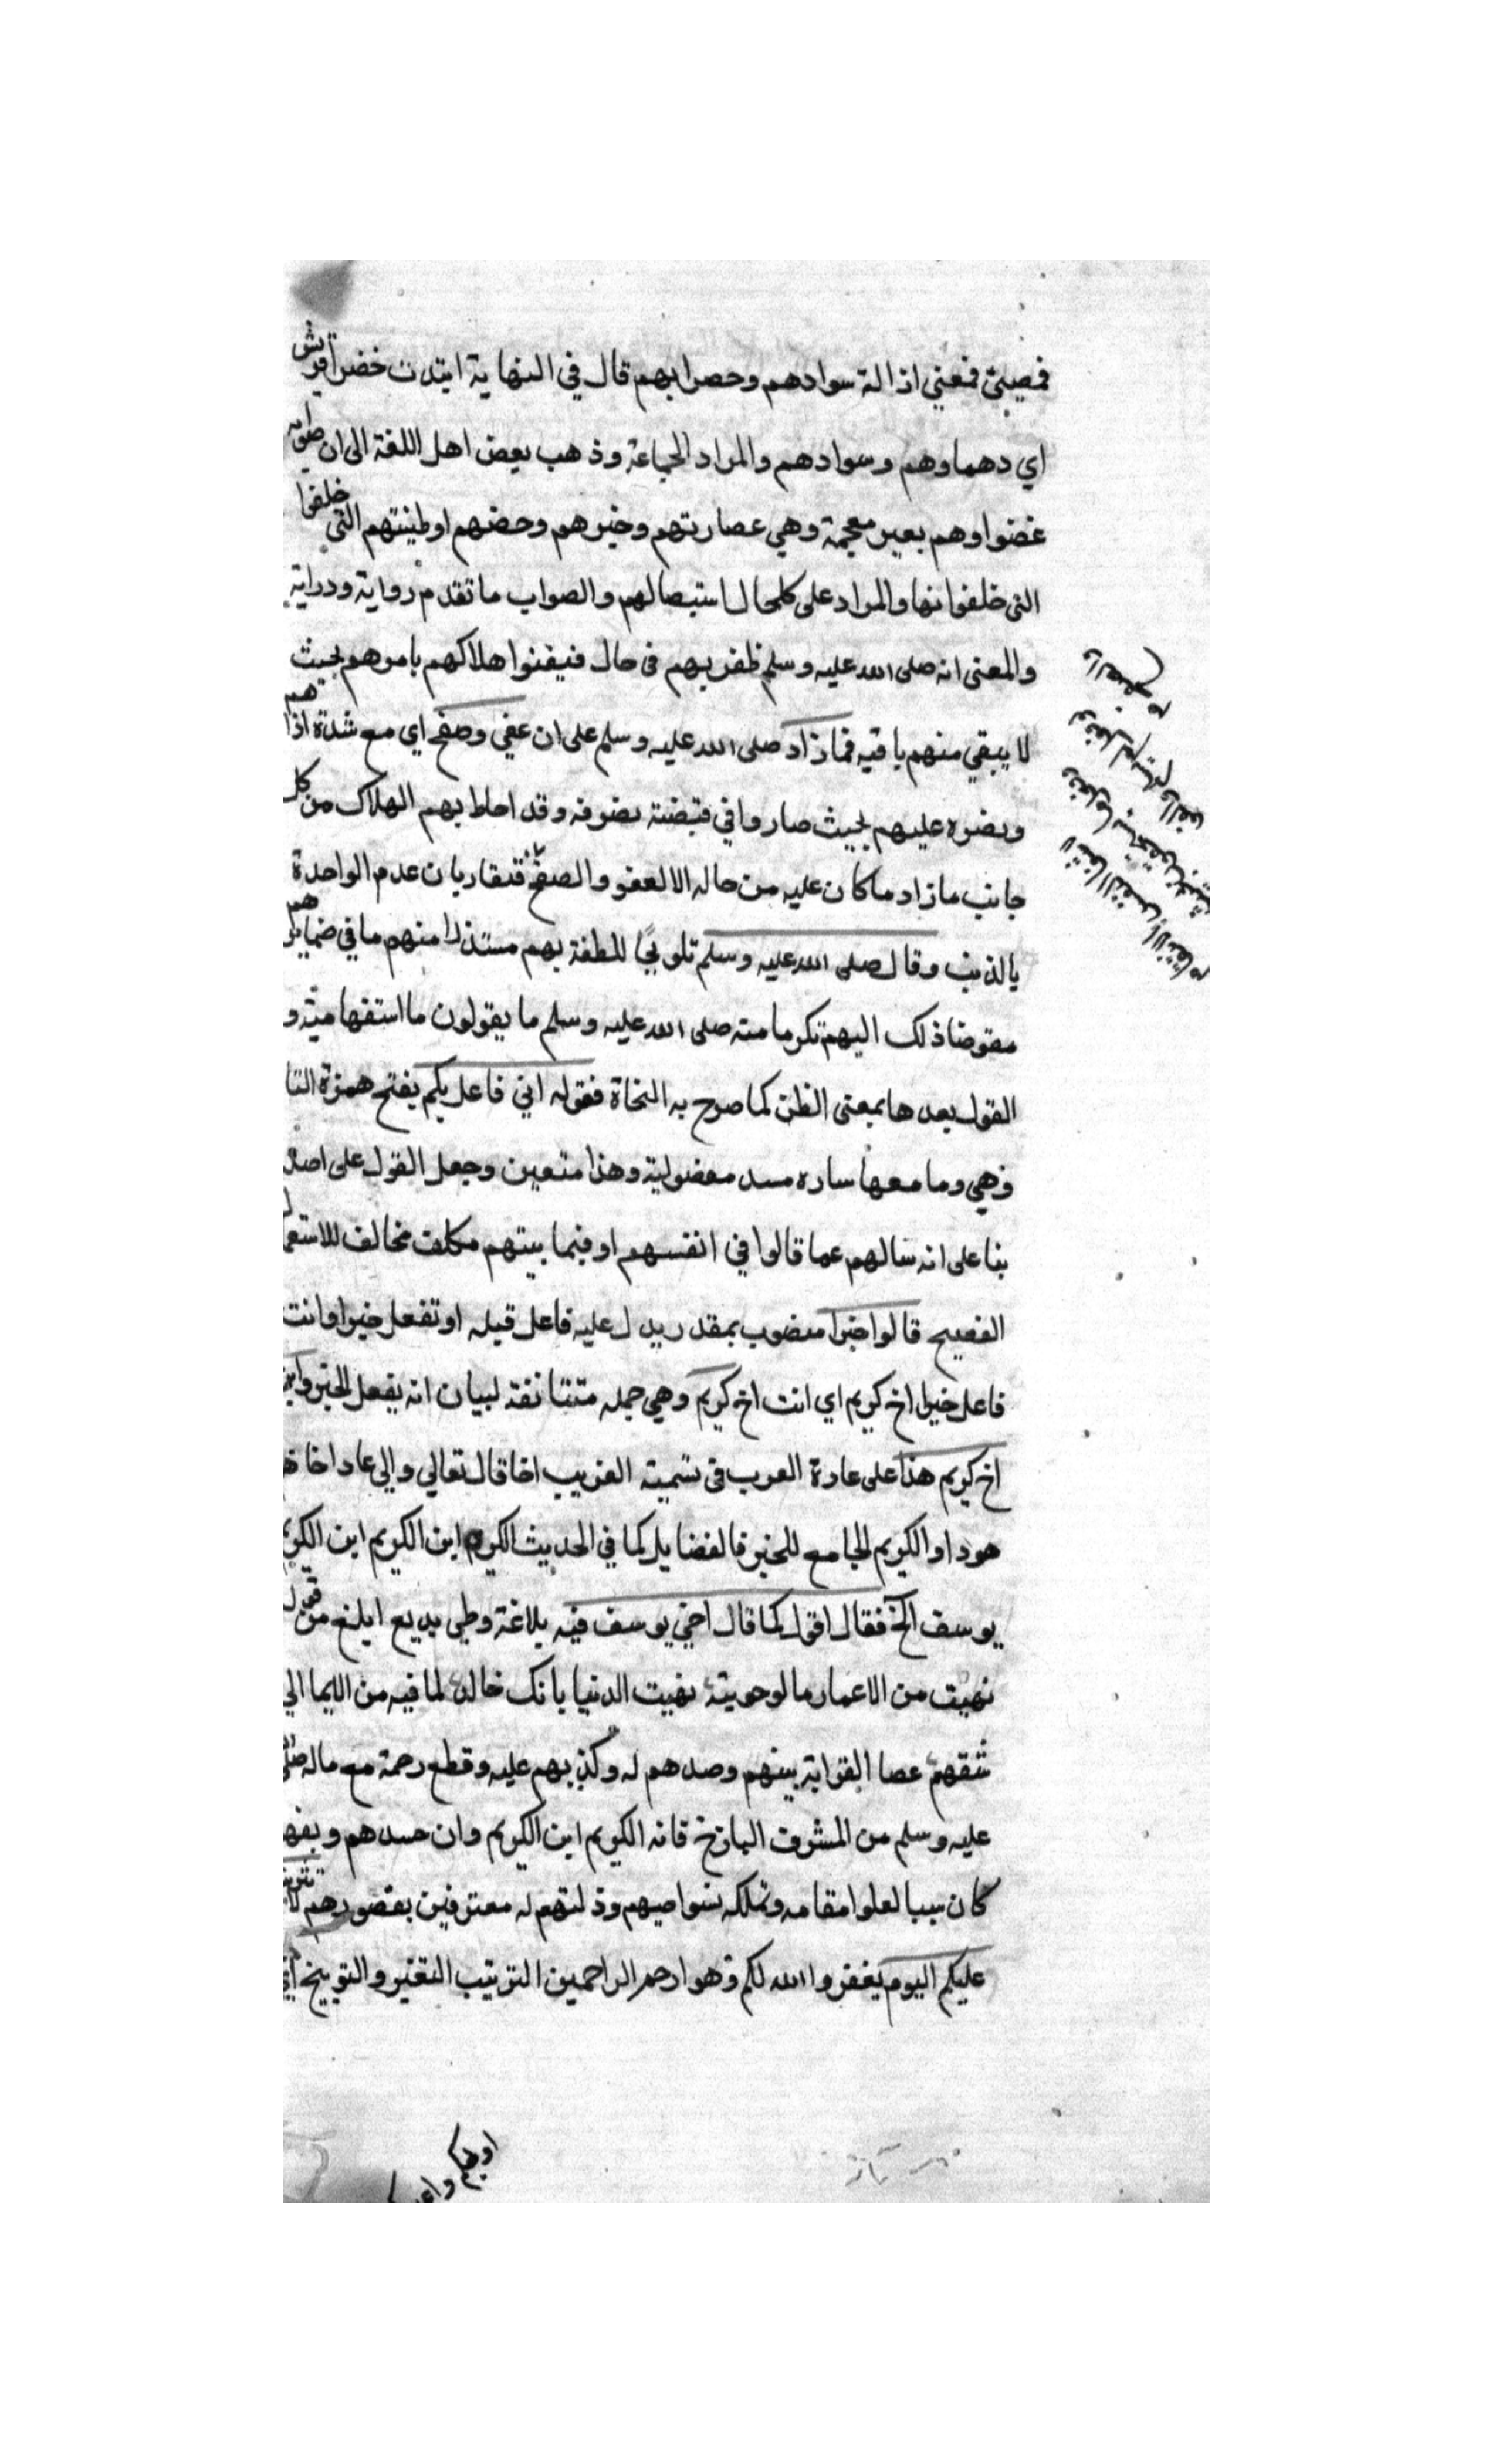 فمعنى اذالة سوادهم وحصرابهم قال في النهاية ابتدت خضرا قريش
اي دهماوهم وسوادهم والمراد الجماعة وذهب بعض اهل اللغة الى ان صوابه
غضراوهم بعين معجمة وهي عصارتهم وخيرهم وحضهم اوطينتهم التي خلقوا
التي خلقوا منها والمراد على كلحال استيصالهم والصواب ما تقدم رواية ودراية
والمعنى انه صلى الله عليه وسلم ظفر بهم في حال فتيقنوا هلاكهم بامرهم بحيث
لا يبقي منهم باقيه فما زاد صلى الله عليه وسلم على ان عفي وصفح اي مع شدة اذاهم
ونصره عليهم بحيث صاروا في قبضته وقد احاط بهم الهلاك من كل
جانب ما زاد ما كان عليه من حاله الا العفو والصفح فتقاربان عدم الواحدة
بالذنب وقال صلى الله عليه وسلم بهم منهم ما في ضمايرهم
مفوضا ذلك اليهم تكرما منه صلى الله عليه وسلم ما يقولون ما استفهامية و
القول بعدها بمعنى الظن كما صرح به النحاة فقوله اني فاعل بكم بفتح همزة
وهي وما معها ساده مسد مفعولية وهذا متعين وجعل القول على اصله
بنا على انه سالهم عما قالوا في انفسهم او فيما بينهم مكلف مخالف للاستعمال
الفصيح قالوا خيرا منصوب بمقدر يدل عليه فاعل قبله او تفعل خيرا وانت
فاعل خيرا اخ كريم اي انت اخ كريم وهي جمله لبيان انه يفعل الخير وابن
اخ كريم هذا على عادة العرب في تسمية القريب اخا قال تعالي والي عاد اخاهم
هودا والكريم الجامع للخير فالفضايل كما في الحديث الكريم ابن الكريم ابن الكريم
يوسف الخ فقال اقول كما قال اخي يوسف فيه بلاغة وطي بديع ابلغ من قوله
نهبت من الاعمار ما لو حويته نهيت الدنيا بانك خالد لما فيه من الايما الي
شقهم عصا القرابة بينهم وصدهم له وكذبهم عليه وقطع رحمة مع ماله صلى
عليه وسلم من الشرف الباذخ فانه الكريم ابن الكريم وان حسدهم
كان سببا لعلوا مقامه وتملكه نواصيهم وذلتهم له معترفين بقصورهم لا تثريب
عليكم اليوم يغفر الله لكم وهو ارحم الراحمين التثريب التعيير والتوبيخ